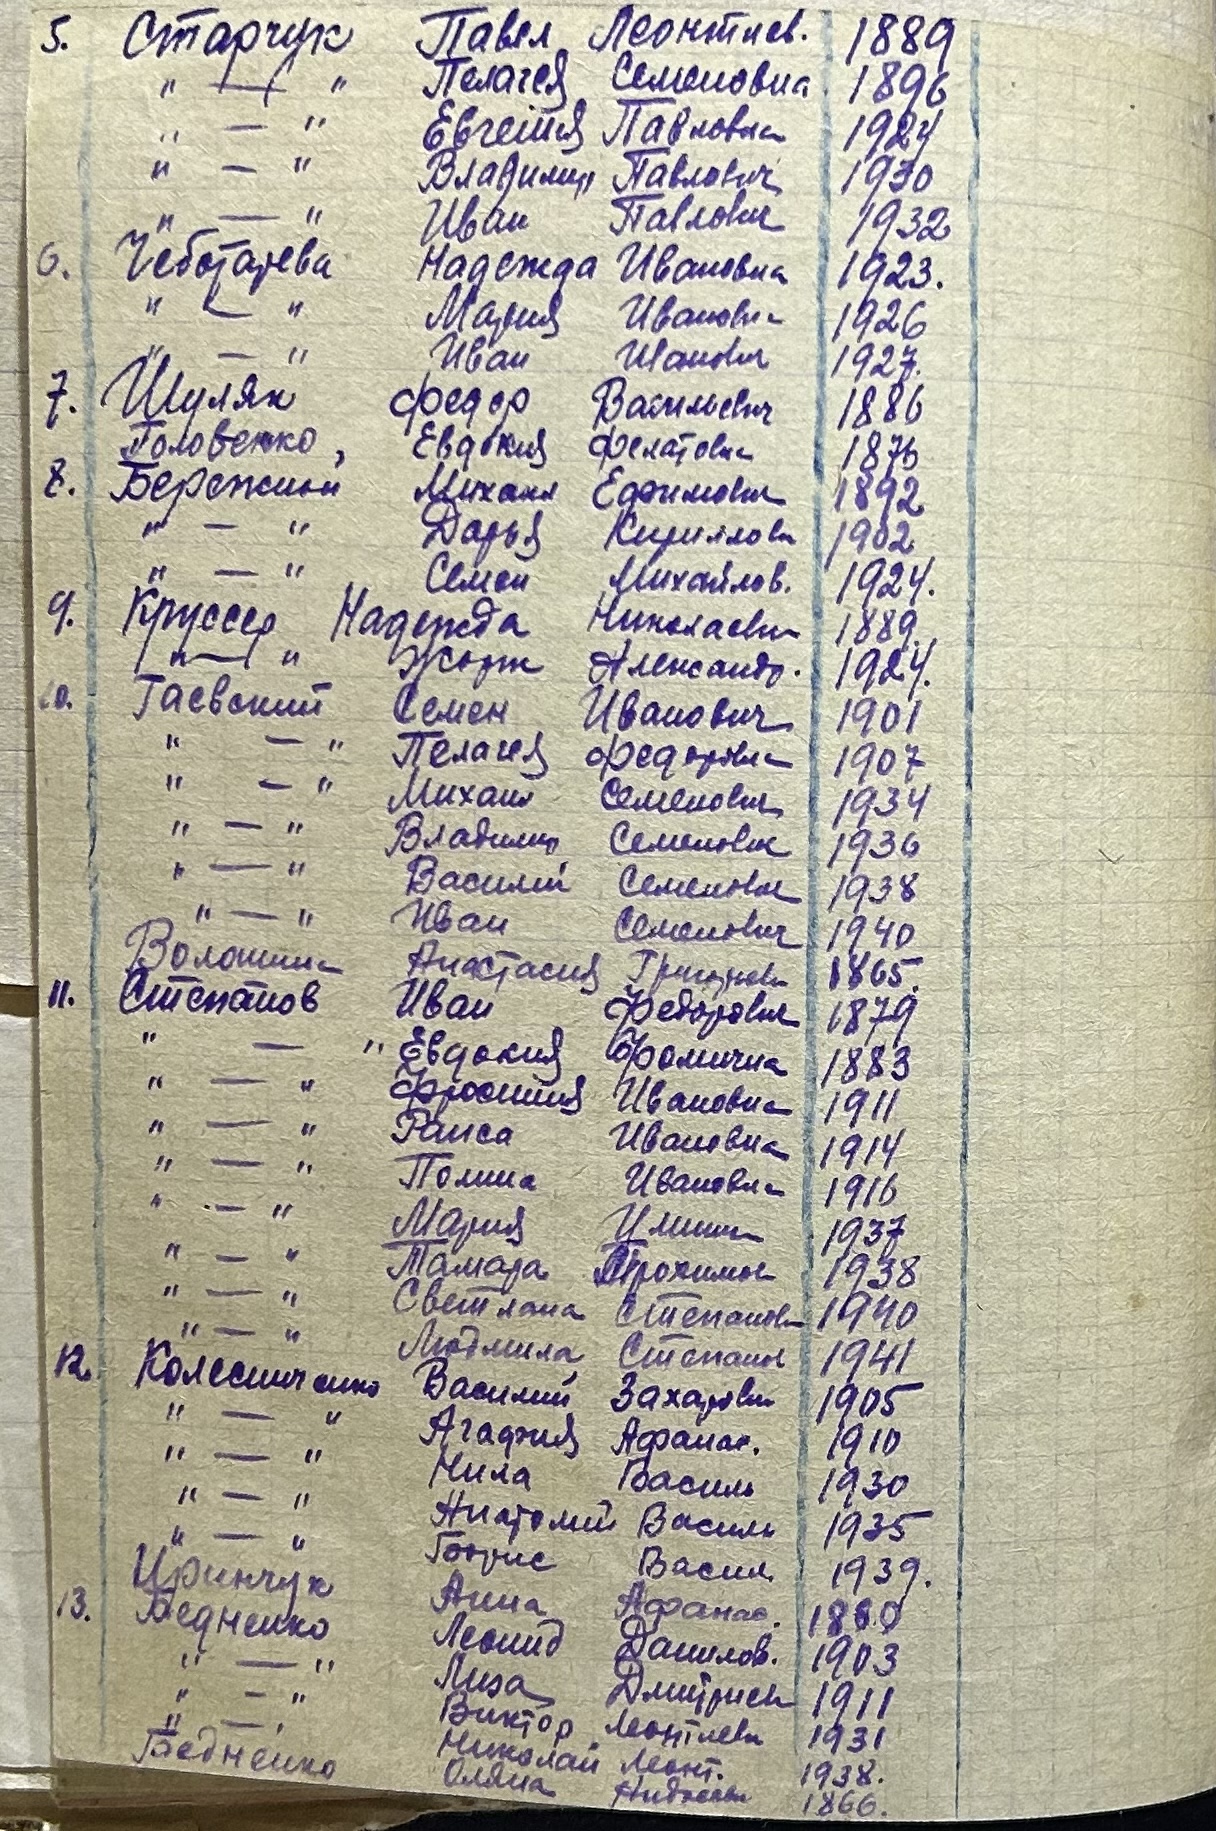 5. Старчук Павел Леонтиев. 1889
" — " Пелагея Семеновна 1896
" — " Евгения Павловна 1924
" — " Владимир Павлович 1930
" — " Иван Павлович 1932
6. Чеботарева Надежда Ивановна 1923.
" — " Мария Ивановна 1926
" — " Иван Иванович 1927.
7. Шуляк Федор Васильевич 1886
Головенко, Евдокия Филатовна 1876
8. Бережной Михаил Ефимович 1892
" — " Дарья Кирилловна 1902
" — " Семен Михайлов. 1924.
9. Круссер Надежда Николаевна 1889.
" — " Жорж Александр. 1924.
10. Гаевский Семен Иванович 1901
" — " Пелагея Федоровна 1907
" — " Михаил Семенович 1934
" — " Владимир Семенович 1936
" — " Василий Семенович 1938
" — " Иван Семенович 1940
Волошина Анастасия Григорьев 1865.
11. Степанов Иван Федорович 1879
" — " Евдокия Фомична 1883
" — " Фросиния Ивановна 1911
" — " Раиса Ивановна 1914
" — " Полина Ивановна 1916
" — " Мария 1937
" — " Тамара Трохимов 1938
" — " Светлана Степанов 1940
" — " Людмила Степанов 1941
12. Колесниченко Василий Захарович 1905
" — " Агафия Афанас. 1910
" — " Нила Василь 1930
" — " Анатолий Василь 1935
" — " Борис Васил. 1939.
Иринчук Анна Афанас. 1860
13. Бедненко Леонид Данилов. 1903
" — " Лиза Дмитриев 1911
" — " Виктор Леонтиев 1931
" — " Николай Леонт. 1938.
Бедненко Оляна 1866.